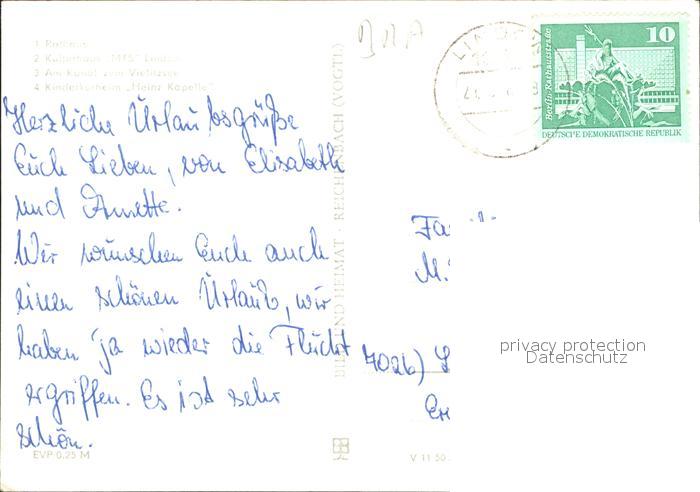 1 Rathaus
2 Kulturhaus „MTS“ Lindow
3 Am Kanal zum Vielitzsee
4 Kinderkurheim „Heinz Kapelle“
Herzliche Urlaubsgrüße
Euch Lieben, von Elisabeth
und Annette.
Wir wünschen Euch auch
einen schönen Urlaub, wir
haben ja wieder die Flucht
ergriffen. Es ist sehr
schön.
EVP 0,25 M
BILD UND HEIMAT · REICHENBACH (VOGTL)
V 11 50
10
Berlin Rathausstraße
DEUTSCHE DEMOKRATISCHE REPUBLIK
7026)
privacy protection
Datenschutz